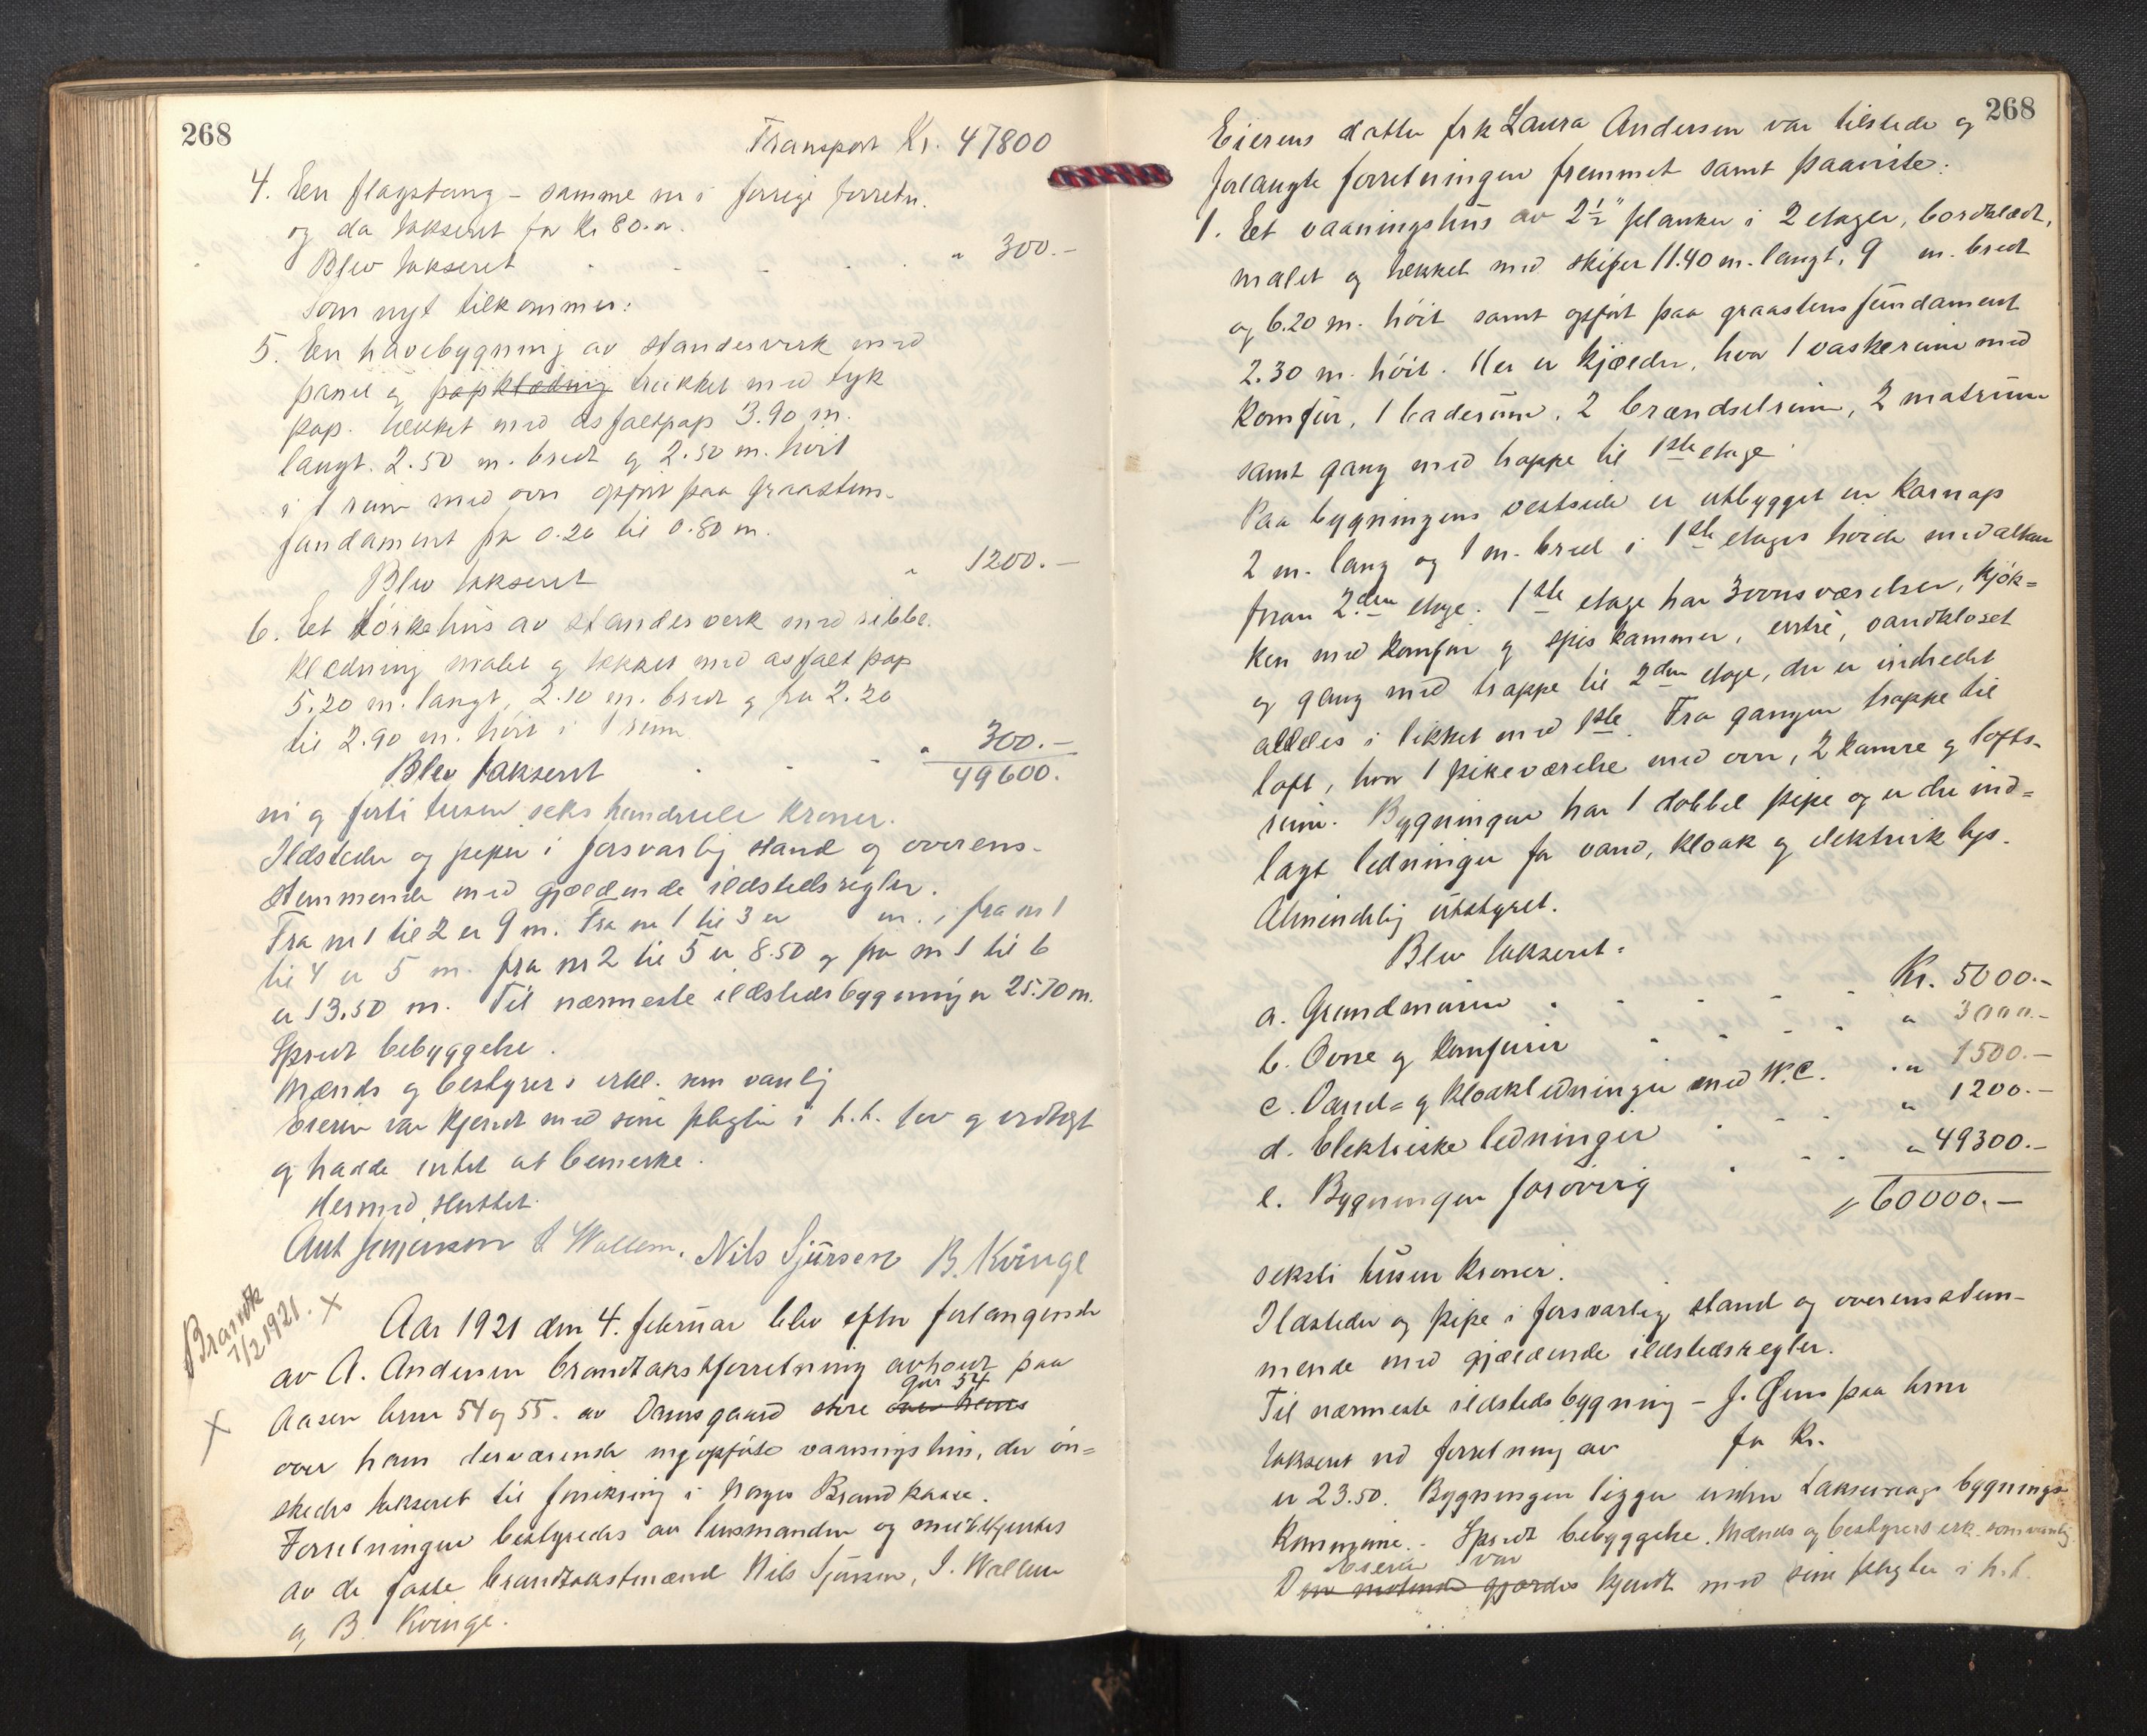 268
Transport Kr. 47800
4. Een flagstang - samme nr i forrige forretn.
og da takseret for Kr 80.oo.
Blev takseret " 300.-
Som nyt tilkommer:
5. En havebygning av standerverk med
panel og papklædning trækket med tyk
pap. tækket med asfaltpap 3.90 m.
langt. 2.50 m. bredt og 2.50 m. høit
i 1 rum med ovn opført paa graastens-
fundament fra 0.20 til 0.80 m.
Blev takseret " 1200.-
6. Et tørkehus av standerverk med ribbe-
klædning malet og tækket med asfalt pap
5.20 m. langt, 2.10 m. bredt og fra 2.20
til 2.90 m. høit i 1 rum
Blev takseret " 300.-
49600.
ni og førti tusen seks hundrede kroner.
Ildsteder og piper i forsvarlig stand og overens-
stemmende med gjældende ildstedsregler.
Fra nr 1 til 2 er 9 m. Fra nr 1 til 3 er m. i fra nr 1
til 4 er 5 m. fra nr 2 til 5 er 8.50 og fra nr 1 til 6
er 13.50 m. Til nærmeste ildstedsbygning er 25.70 m.
Spredt bebyggelse.
Mænds og bestyrers erkl. som vanlig
Eieren var kjendt med sine pligter i h.t. lov og vedtægt
og hadde intet at bemerke.
Hermed sluttet.
S Wallem. Nils Sjursen B. Kvinge
Brandtk
7/2 1921. X
Aar 1921 den 4. februar blev efter forlangende
av A. Andersen brandtakstforretning avholdt paa
gnr 54
X Aasen brnr 54 og 55. av Damsgaard store over hans
over hans derværende nyopførte vaaningshus, der øn=
skedes takseret til forsikring i Norges Brandkasse.
Forretningen bestyredes av lensmanden og medbetjentes
av de faste brandtakstmænd Nils Sjursen, S. Wallem
og B. Kvinge.
268
Eierens datter frk Laura Andersen var tilstede og
forlangte forretningen fremmet samt paaviste:
1. Et vaaningshus av 2 1/2" planker i 2 etager, bordklædt,
malet og tækket med skifer 11.40 m. langt, 9 m. bredt
og 6.20 m. høit samt opført paa graastensfundament
2.30 m. høit. Her er kjælder, hvor 1 vaskerum med
komfur, 1 baderum, 2 brændselrum, 2 matrum
samt gang med trappe til 1ste etage.
Paa bygningens vestside er utbygget en karnap
2 m. lang og 1 m. bred i 1ste etages høide med altan
foran 2den etage. 1ste etage har 3 ovnsværelser, kjøk=
ken med komfur og spiskammer, entre, vandkloset
og gang med trappe til 2den etage, der er indredet
aldeles i likhet med 1ste. Fra gangen trappe til
loft, hvor 1 pikeværelse med ovn, 2 kamre og lofts-
rum. Bygningen har 1 dobbel pipe og er der ind=
lagt ledninger for vand, kloak og elektrisk lys.
Almindelig utstyret.
Blev takseret:
a. Grundmuren Kr. 5000.-
b. Ovne og komfurer " 3000.-
c. Vand= og kloakledninger med W.C. " 1500.-
d. Elektriske ledninger " 1200.-
e. Bygningen forøvrig " 49300.-
" 60000.-
seksti tusen kroner.
Ildsteder og pipe i forsvarlig stand og overensstem-
mende med gjældende ildstedsregler.
Til nærmeste ildstedsbygning - paa brnr
takseret ved forretning av for kr.
er 23.50. Bygningen ligger under Laksevaags bygnings-
kommune. - Spredt bebyggelse. Mænds og bestyrers erk. som vanlig
Eieren var
Den gjordes kjendt med sine pligter i h.t.